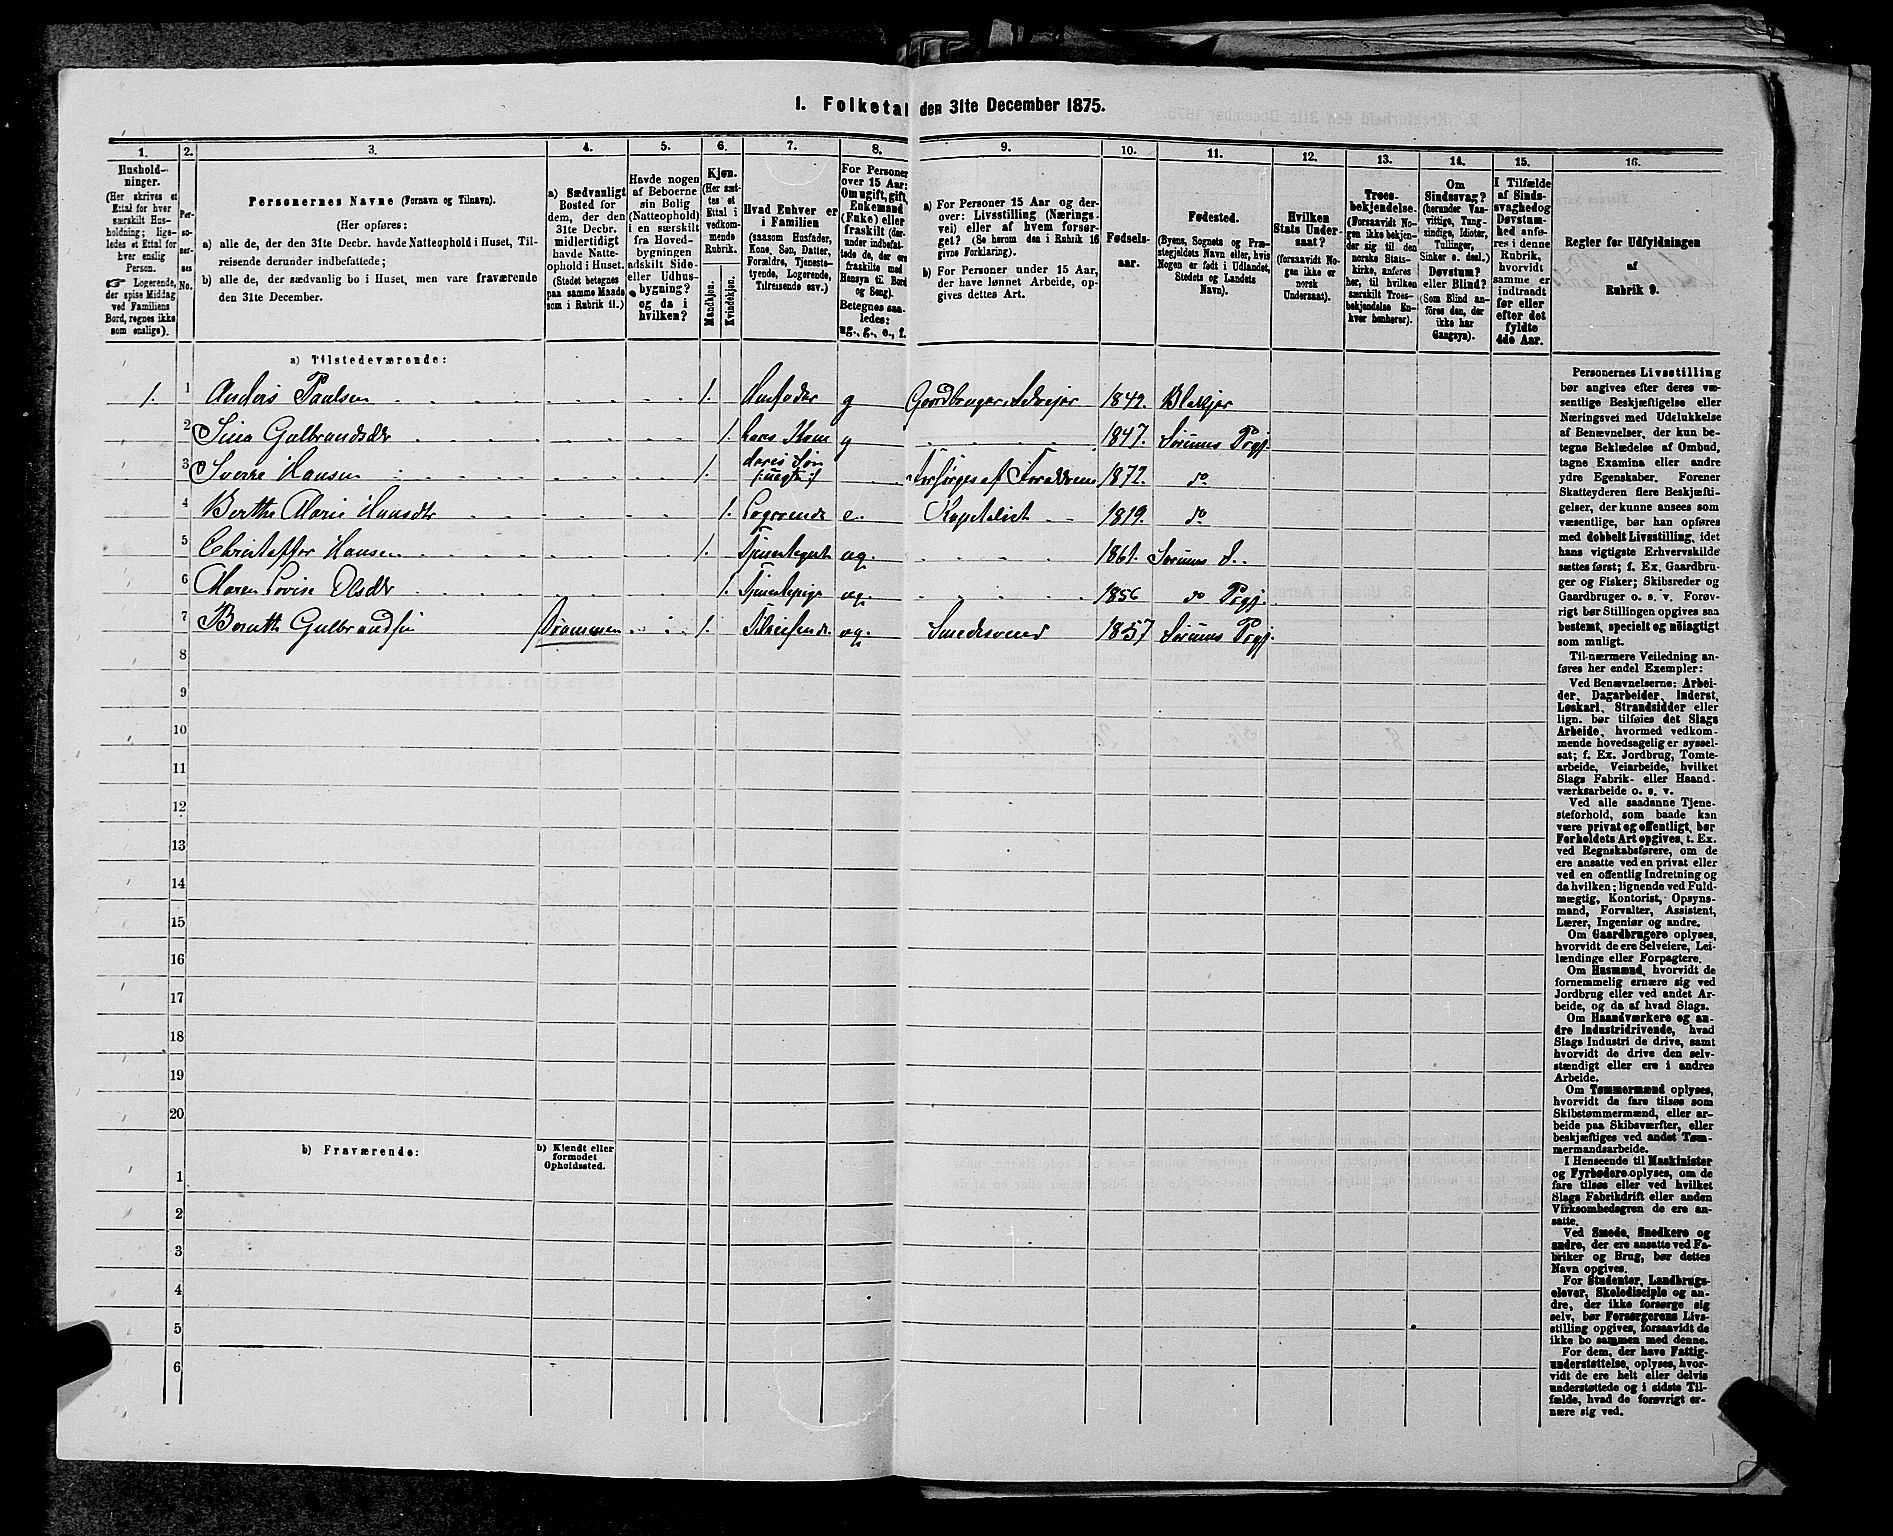 1. Folketal den 31te December 1875.
1. 2. 3. 4. 5. 6. 7. 8. 9. 10. 11. 12. 13. 14. 15. 16.
Hushold-
ninger.
(Her skrives et
Ettal for hver
særskilt Hus-
holdning; lige-
ledes et Ettal for
hver enslig
Person.
☞ Logerende,
der spise Middag
ved Familiens
Bord, regnes ikke
som enslige).
Per-
so-
ner-
nes
No.
Personernes Navne (Fornavn og Tilnavn).
(Her opføres:
a) alle de, der den 31te Decbr. havde Natteophold i Huset, Til-
reisende derunder indbefattede;
b) alle de, der sædvanlig bo i Huset, men vare fraværende
den 31te December.
a) Sædvanligt
Bosted for
dem, der den
31te Decbr.
midlertidigt
havde Natte-
ophold i Huset.
(Stedet betegnes
paa samme Maade
som i Rubrik 11.)
Havde nogen
af Beboerne
sin Bolig
(Natteophold)
i en særskilt
fra Hoved-
bygningen
adskilt Side-
eller Udhus-
bygning?
og da i
hvilken?
Kjøn.
(Her sæt-
tes et
Ettal i
vedkom-
mende
Rubrik.
Mandkjøn.
Kvindekjøn.
Hvad Enhver er
i Familien
(saasom Husfader,
Kone, Søn, Datter,
Forældre, Tjeneste-
tyende, Logerende,
Tilreisende osv.)
For Personer
over 15 Aar:
Om ugift, gift,
Enkemand
(Enke) eller
fraskilt (der-
under indbefat-
tede de, der ere
fraskilte med
Hensyn til Bord
og Seng).
Betegnes saa-
ledes:
ug., g., e., f.
a) For Personer 15 Aar og der-
over: Livsstilling (Nærings-
vei) eller af hvem forsør-
get? (Se herom den i Rubrik 16
givne Forklaring).
b) For Personer under 15 Aar,
der have lønnet Arbeide, op-
gives dettes Art.
Fødsels-
aar.
Fødested.
(Byens, Sognets og Præ-
stegjeldets Navn eller, hvis
Nogen er født i Udlandet,
Stedets og Landets
Navn).
Hvilken
Stats Under-
saat?
(forsaavidt No-
gen ikke er
norsk
Undersaat).
Troes-
bekjendelse.
(Forsaavidt No-
gen ikke bekjen-
der sig til den
norske Stats-
kirke, anføres
her, til hvilken
særskilt Troes-
bekjendelse En-
hver henhører).
Om
Sindssvag?
(herunder Van-
vittige, Tung-
sindige, Idioter,
Tullinger,
Sinker o. desl.)
Døvstum?
eller Blind?
(Som Blind an-
føres den, der
ikke har
Gangsyn).
I Tilfælde
af Sinds-
svaghed og
Døvstum-
hed anfø-
res i denne
Rubrik,
hvorvidt
samme er
indtraadt
før eller
efter det
fyldte
4de Aar.
Regler for Udfyldningen
af
Rubrik 9.
a) Tilstedeværende:
1. 1 Anders Paulsen 1. Husfader g Gaardbruger, Selveier 1842. Blakjer
2 Sina Gulbrandsdtr 1. hans Kone g 1847. Sørums Prgj.
3 Sverre Hansen 1. deres Søn Forsørges af Forældrene 1872. do
4 Berthe Marie Hansdtr 1. Logerende e. Kapitalist 1819. do
5 Christoffer Hansen 1. Tjenestegut ug. 1861. Sørums
6 Maren Lovise Olsdtr 1. Tjenestepige ug. 1856 do Prgj.
7 Gulbrandsen Drammen 1. Tilreisende ug. Smedesvend 1857 Sørums Prgj.
8
9
10
11
12
13
14
15
16
17
18
19
20
b) Fraværende:
b) Kjendt eller
formodet
Opholdssted.
1
2
3
4
5
6
Personernes Livsstilling
bør angives efter deres væ-
sentlige Beskjæftigelse eller
Næringsvei med Udelukkelse
af Benævnelser, der kun be-
tegne Beklædelse af Ombud,
tagne Examina eller andre
ydre Egenskaber. Forener
Skatteyderen flere Beskjæfti-
gelser, der kunne ansees som
væsentlige, bør han opføres
med dobbelt Livsstilling, idet
hans vigtigste Erhvervskilde
sættes først; f. Ex. Gaardbru-
ger og Fisker; Skibsreder og
Gaardbruger o. s. v. Forøv-
rigt bør Stillingen opgives saa
bestemt, specielt og nöiagtigt
som muligt.
Til nærmere Veiledning an-
føres her endel Exempler:
Ved Benævnelserne: Arbei-
der, Dagarbeider, Inderst,
Løskarl, Strandsidder eller
lign. bør tilføies det Slags
Arbeide, hvormed vedkom-
mende hovedsagelig er syssel-
sat; f. Ex. Jordbrug, Tomte-
arbeide, Veiarbeide, hvilket
Slags Fabrik- eller Haand-
værksarbeide o. s. v.
Ved alle saadanne Tjene-
steforhold, som baade kan
være privat og offentligt, bør
Forholdets Art opgives, t. Ex.
ved Regnskabsførere, om de
ere ansatte ved en privat eller
ved en offentlig Indretning og
da hvilken; lignende ved Fuld-
mægtig, Kontorist, Opsyns-
mand, Forvalter, Assistent,
Lærer, Ingeniør og andre.
Om Gaardbrugere oplyses,
hvorvidt de ere Selveiere, Lei-
lændinge eller Forpagtere.
Om Husmænd, hvorvidt de
fornemmelig ernære sig ved
Jordbrug eller ved andet Ar-
beide, og da af hvad Slags.
Om Haandværkere og an-
dre Industridrivende, hvad
Slags Industri de drive, samt
hvorvidt de drive den selv-
stændigt eller ere i andres
Arbeide.
Om Tømmermænd oplyses,
hvorvidt de fare tilsøs som
Skibstømmermænd, eller ar-
beide paa Skibsværfter, eller
beskjæftiges ved andet Tøm-
mermandsarbeide.
I Henseende til Maskinister
og Fyrbødere oplyses, om de
fare tilsøs eller ved hvilket
Slags Fabrikdrift eller anden
Virksomhedsgren de ere an-
satte.
Ved Smede, Snedkere og
andre, der ere ansatte ved Fa-
briker og Brug, bør dettes
Navn opgives.
For Studenter, Landbrugs-
elever, Skoledisciple og an-
dre, der ikke forsørge sig
selv, bør Forsørgerens Livs-
stilling opgives, forsaavidt de
ikke bo sammen med denne.
For dem, der have Fattig-
understøttelse, oplyses, hvor-
vidt de ere helt eller delvis
understøttede og i sidste Til-
fælde, hvad de forøvrigt er-
nære sig ved.